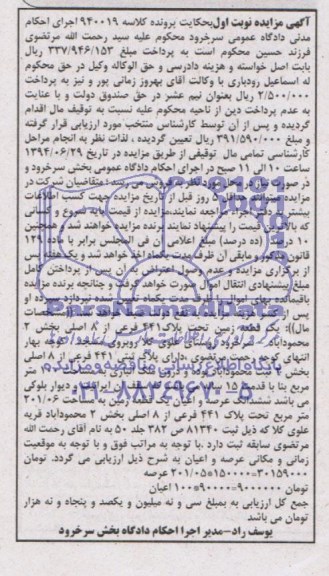 آگهی مزایده نوبت اول بحکایت پرونده کلاسه ۹۴۰۰۱۹ اجرای احکام
مدنی دادگاه عمومی سرخرود محکوم علیه سید رحمت الله مرتضوی
فرزند حسین محکوم است به پرداخت مبلغ ۳۳۷/۹۴۶/۱۵۳ ریال
بابت اصل خواسته و هزینه دادرسی و حق الوکاله وکیل در حق محکوم
له اسماعیل رودباری با وکالت آقای بهروز زمانی پور و نیز به پرداخت
۲/۵۰۰/۰۰۰ ریال بعنوان نیم عشر در حق صندوق دولت و با عنایت
به عدم پرداخت دین از ناحیه محکوم علیه نسبت به توقیف مال اقدام
گردیده و پس از آن توسط کارشناس منتخب مورد ارزیابی قرار گرفته
و مبلغ ۳۹۱/۵۹۰/۰۰۰ ریال تعیین گردیده ، لذات نظر به انجام مراحل
کارشناسی تمامی مال توقیفی از طریق مزایده در تاریخ ۱۳۹۴/۰۶/۲۹
ساعت ۱۰ الی ۱۱ صبح در اجرای احکام دادگاه عمومی بخش سرخرود و
در صورت نیاز در محل مورد نظر به فروش می رسد؛ متقاضیان شرکت در
مزایده میتوانند حداقل ۵ روز قبل از تاریخ مزایده جهت کسب اطلاعات
بیشتر به این اجراء مراجعه نمایند.مزایده از قیمت پایه شروع و کسانی
که بالاترین قیمت را پیشنهاد نمایند برنده مزایده خواهند شد و همچنین
۱۰ درصد (ده درصد) مبلغ اعلامی ان فی المجلس برابر با ماده ۱۲۹
قانون مذکور و مابقی آن ظرف مدت یکماه اخذ خواهد شد و یک هفته پس
از برگزاری مزایده و عدم وصول اعتراض به آن پس از پرداختن کامل
مبلغ پیشنهادی انتقال اموال صورت خواهد گرفت و چنانچه برنده مزایده
باقیمانده بهای اموال را ظرف مدت یکماه تعیین شده نپردازد سپرده او
پس از
مال)): یک قطعه زمین تحت پلاک ۴۴۱ فرعی از ۸ اصلی بخش ۲
محمودآباد
انتهای کوچه رحمت مرتضوی ،دارای پلاک ثبتی ۴۴۱ فرعی از ۸ اصلی
بخش ۲ ثبت محمودآباد
مربع بنا با قدمت ۱۵ سال و سقف ایرانیت و دیوار بلوکی
می باشد ششدانگ عرصه و اعیان یک قطعه زمین به مساحت ۲۰۱/۰۶
متر مربع تحت پلاک ۴۴۱ فرعی از ۸ اصلی بخش ۲ محمودآباد قریه
علوی کلا که ذیل ثبت ۸۱۳۴۰ ص ۳۸۲ جلد ۵۰ به نام آقای رحمت الله
مرتضوی سابقه ثبت دارد .با توجه به مراتب فوق و با توجه به موقعیت
زمانی و مکانی عرصه و اعیان به شرح ذیل ارزیابی می گردد. تومان
۳۰۱۵۹۰۰۰=۱۵۰۰۰۰×۲۰۱/۰۵ عرصه
تومان ۹۰۰۰۰۰۰=۹۰۰۰۰×۱۰۰ اعیان
جمع کل ارزیابی به بمبلغ سی و نه میلیون و یکصد و پنجاه و نه هزار
تومان می باشد
یوسف راد-مدیر اجرا احکام دادگاه بخش سرخرود
ParsNamadData
پایگاه اطلاع رسانی مناقصه و مزایده
۰۲۱-۸۸۳۴۹۶۷۰-۵